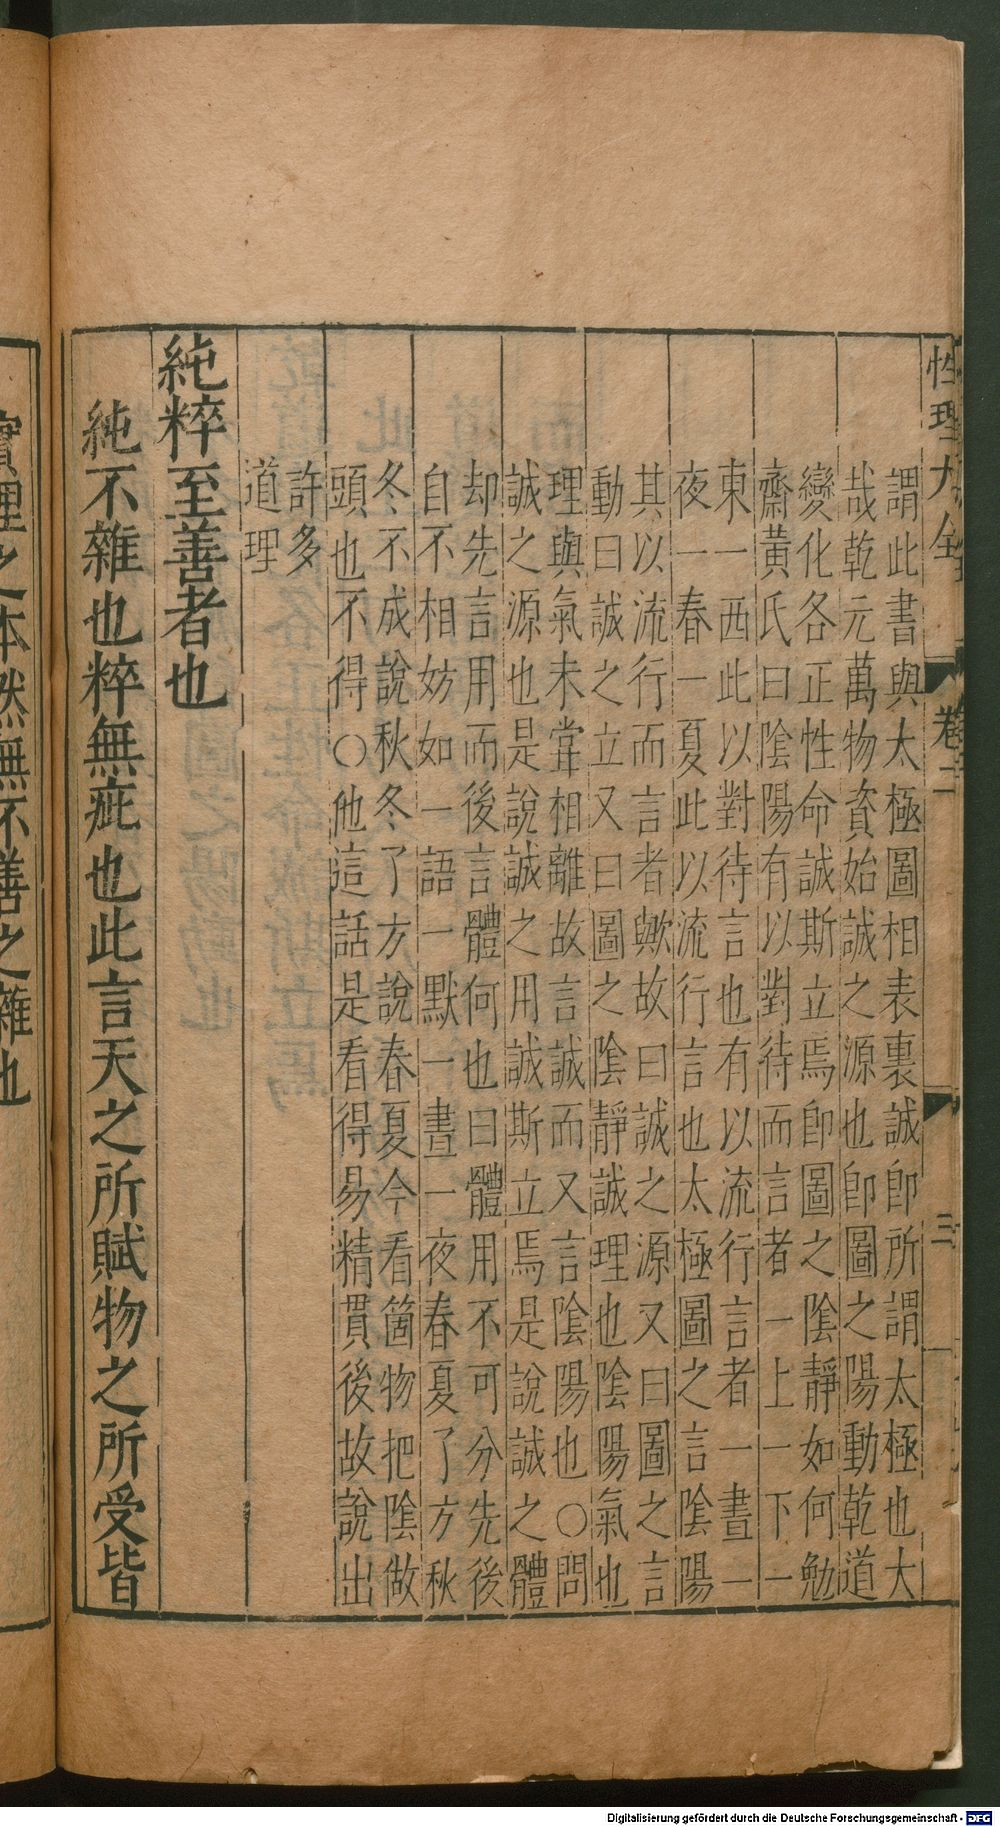 性理大全 卷二 三
謂此書與太極圖相表裏誠卽所謂太極也大
哉乾元萬物資始誠之源也卽圖之陽動乾道
變化各正性命誠斯立焉卽圖之陰靜如何勉
齋黃氏曰陰陽有以對待而言者一上一下一
東一西此以對待言也有以流行言者一晝一
夜一春一夏此以流行言也太極圖之言陰陽
其以流行而言者歟故曰誠之源又曰圖之言
動曰誠之立又曰圖之陰靜誠理也陰陽氣也
理與氣未甞相離故言誠而又言陰陽也○問
誠之源也是說誠之用誠斯立焉是說誠之體
却先言用而後言體何也曰體用不可分先後
自不相妨如一語一默一晝一夜春夏了方秋
冬不成說秋冬了方說春夏今看箇物把陰做
頭也不得○他這話是看得易精貫後故說出
許多
道理
純粹至善者也
純不雜也粹無疵也此言天之所賦物之所受皆
實理之本然無不善之雜也
Digitalisierung gefördert durch die Deutsche Forschungsgemeinschaft - DFG